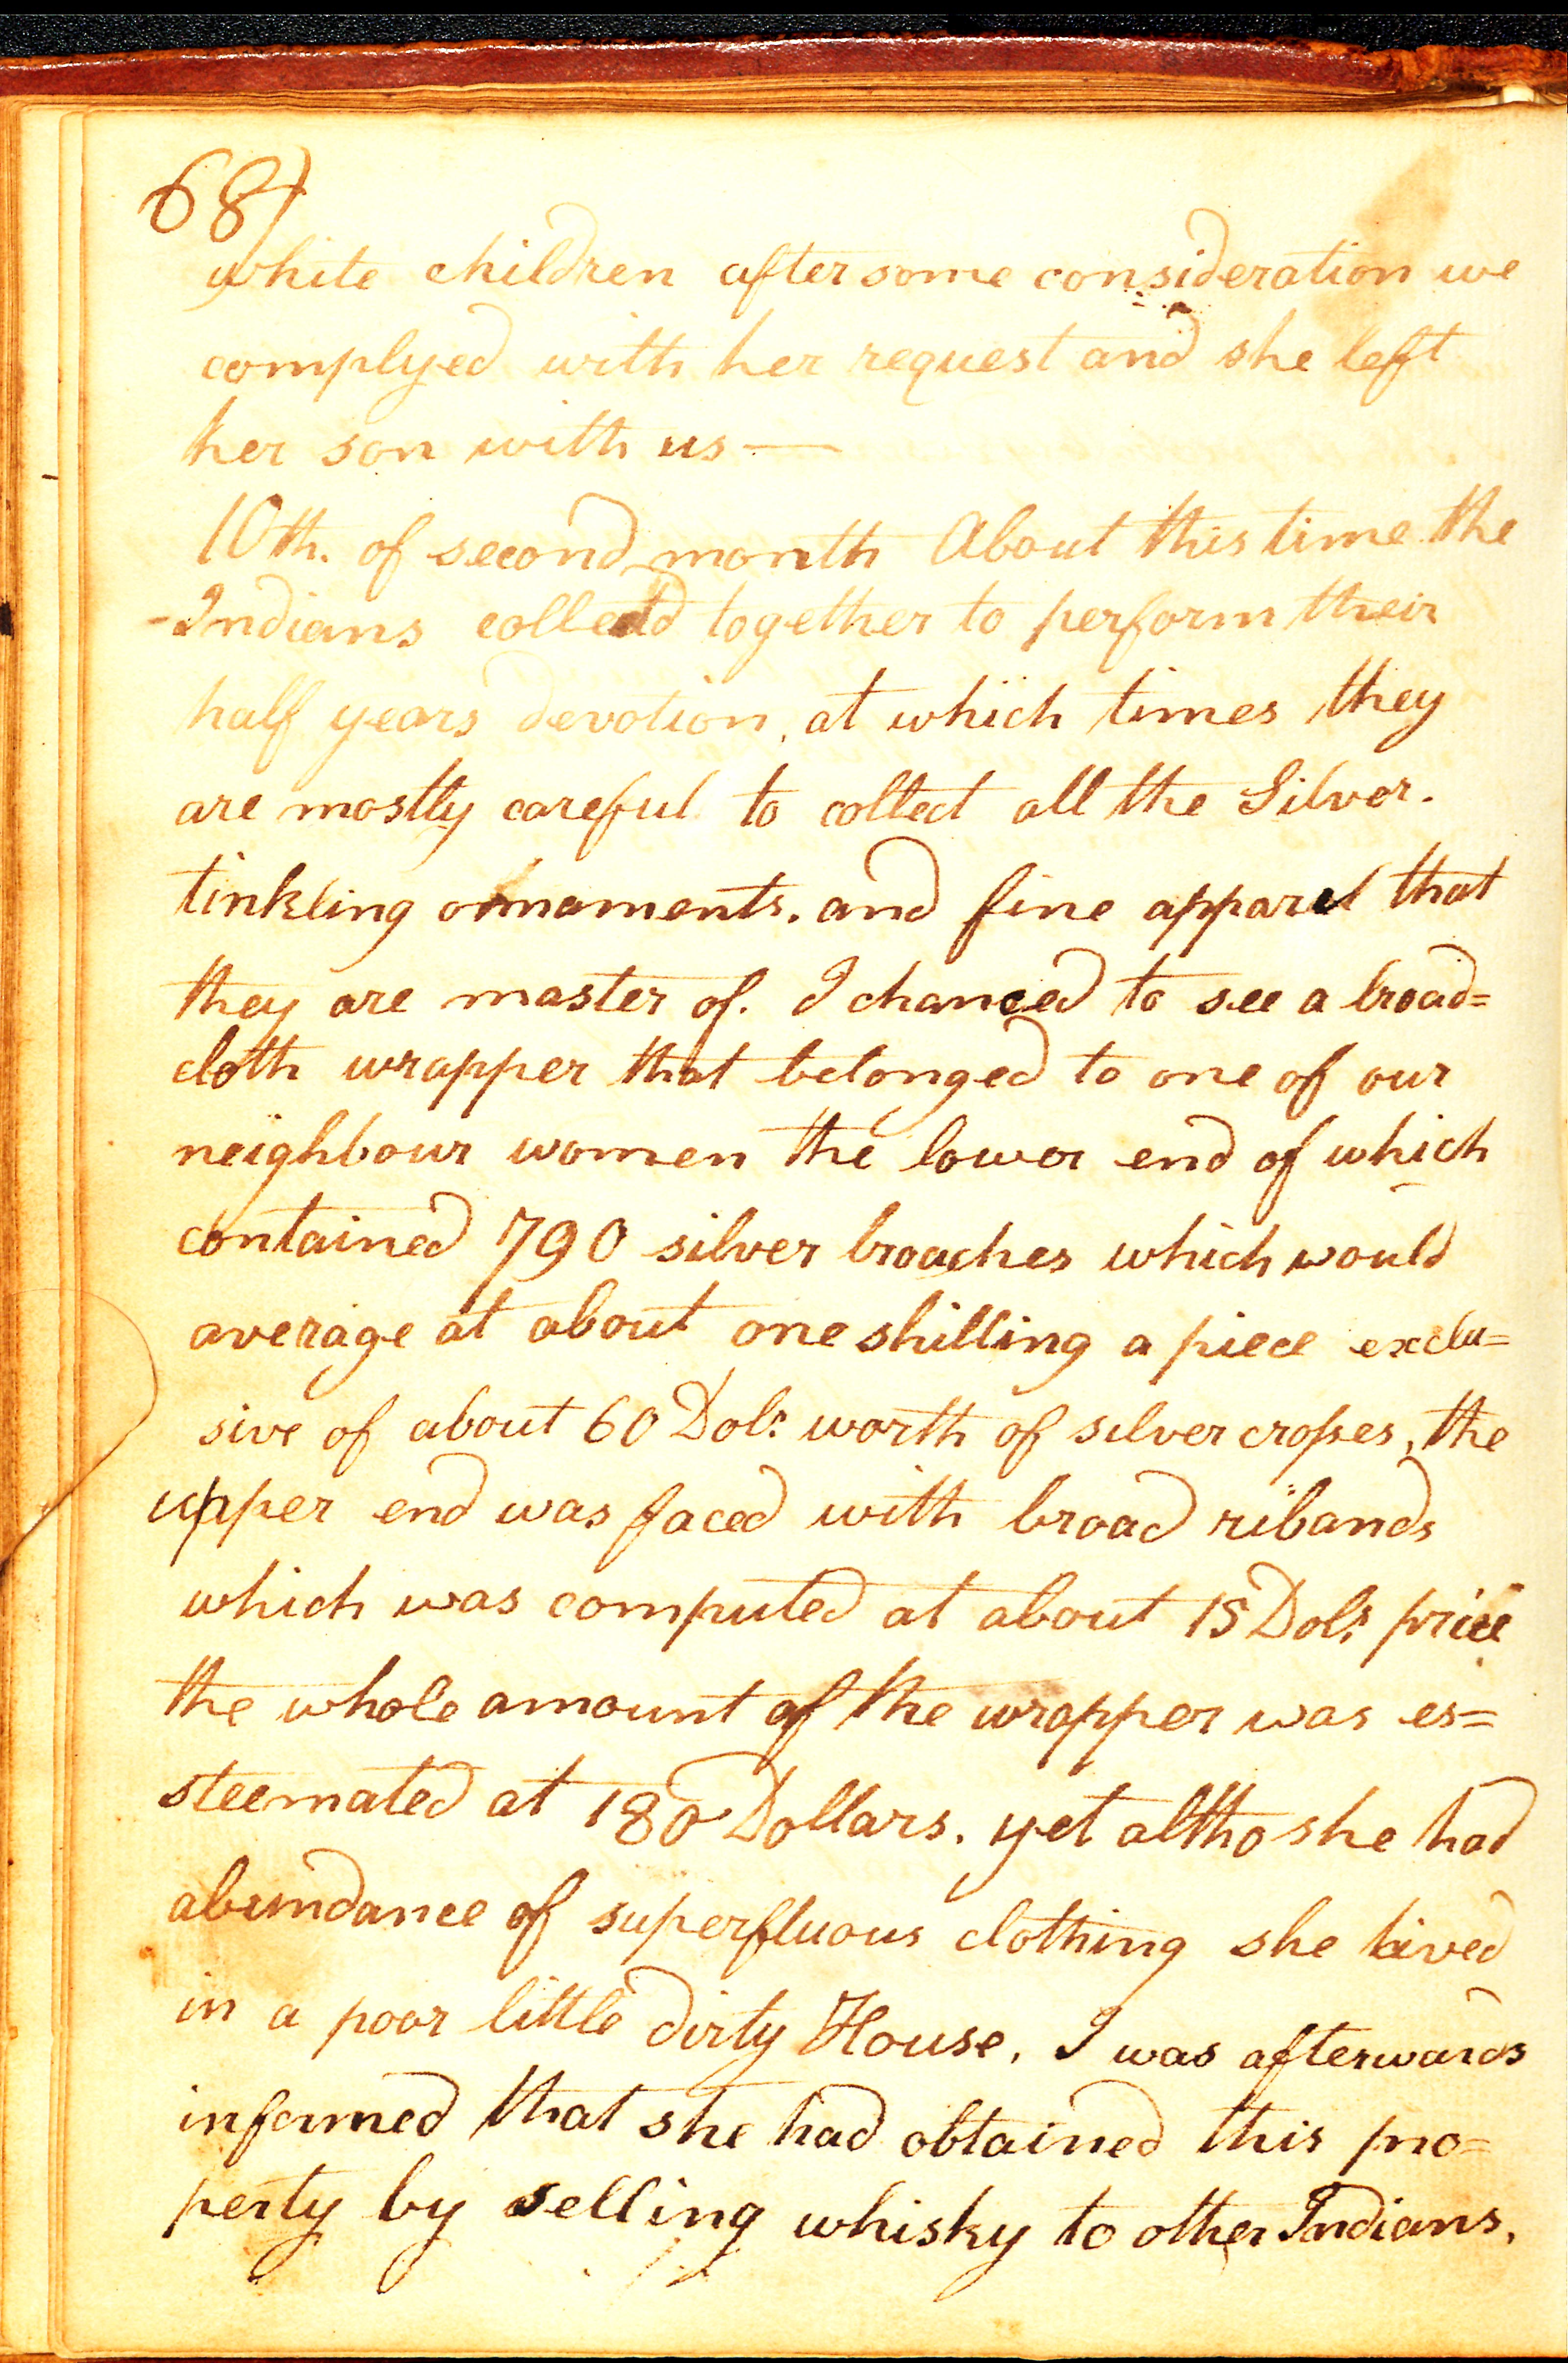 68)
white children after some consideration we
complyed with her request and she left
her son with us —
10th. of second month About this time the
Indians collectd together to perform their
half years devotion, at which times they
are mostly careful to collect all the Silver.
tinkling ornaments. and fine apparel that
they are master of. I chanced to see a broad=
cloth wrapper that belonged to one of our
neighbour women the lower end of which
contained 790 silver broaches which would
average at about one shilling a piece exclu=
sive of about 60 Dols. worth of silver crosses, the
upper end was faced with broad ribands
which was computed at about 15 Dols. price
the whole amount of the wrapper was es=
steemated at 180 Dollars. yet altho she had
abundance of superfluous clothing she lived
in a poor little dirty House. I was afterwards
informed that she had obtained this pro=
perty by selling whisky to other Indians.